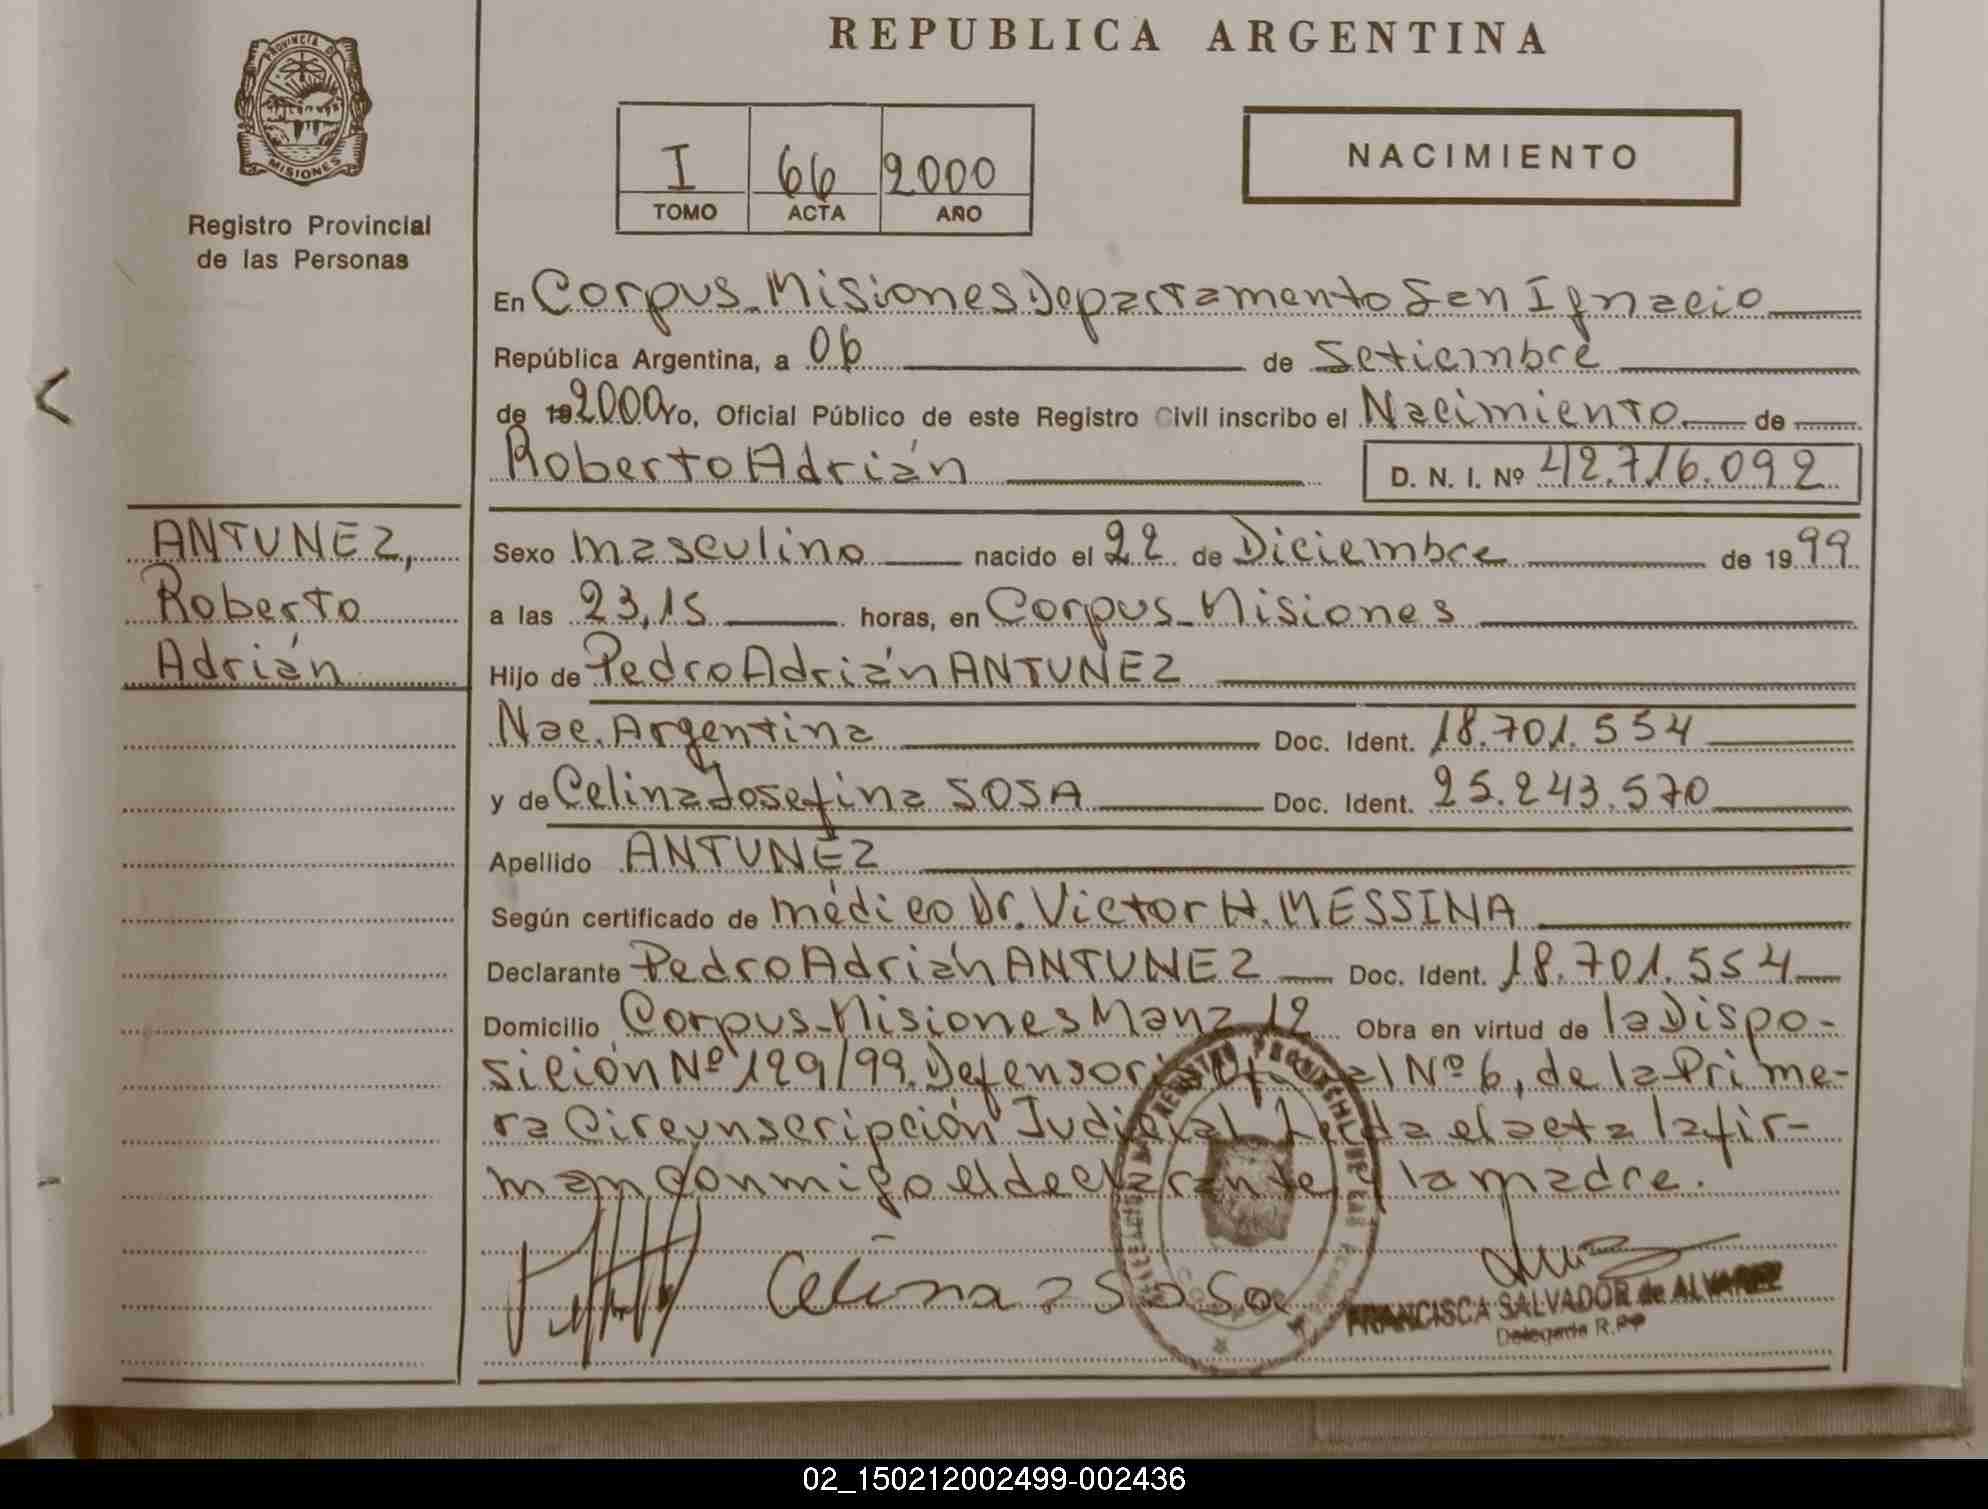 REPUBLICA ARGENTINA
PROVINCIA D
MISIONES
Registro Provincial
de las Personas
I 66 2000
TOMO ACTA AÑO
NACIMIENTO
En Corpus-Misiones Departamento San Ignacio
República Argentina, a 06 de Setiembre
de 19 2000 Yo, Oficial Público de este Registro Civil inscribo el Nacimiento de
Roberto Adrián D. N. I. Nº 42.716.092
ANTUNEZ,
Roberto
Adrián
Sexo masculino nacido el 22 de Diciembre de 1999
a las 23,15 horas, en Corpus-Misiones
Hijo de Pedro Adrián ANTUNEZ
Nac. Argentina Doc. Ident. 18.701.554
y de Celina Josefina SOSA Doc. Ident. 25.243.570
Apellido ANTUNEZ
Según certificado de médico Dr. Victor H. MESSINA
Declarante Pedro Adrián ANTUNEZ Doc. Ident. 18.701.554
Domicilio Corpus-Misiones Manz 12 Obra en virtud de la Dispo-
sición Nº 129/99. Defensoría Oficial Nº 6, de la Prime-
ra Circunscripción Judicial Leída el acta la fir-
man conmigo el declarante y la madre.
Celina SoSa
FRANCISCA SALVADOR de ALVAREZ
Delegada R.PP
02_150212002499-002436